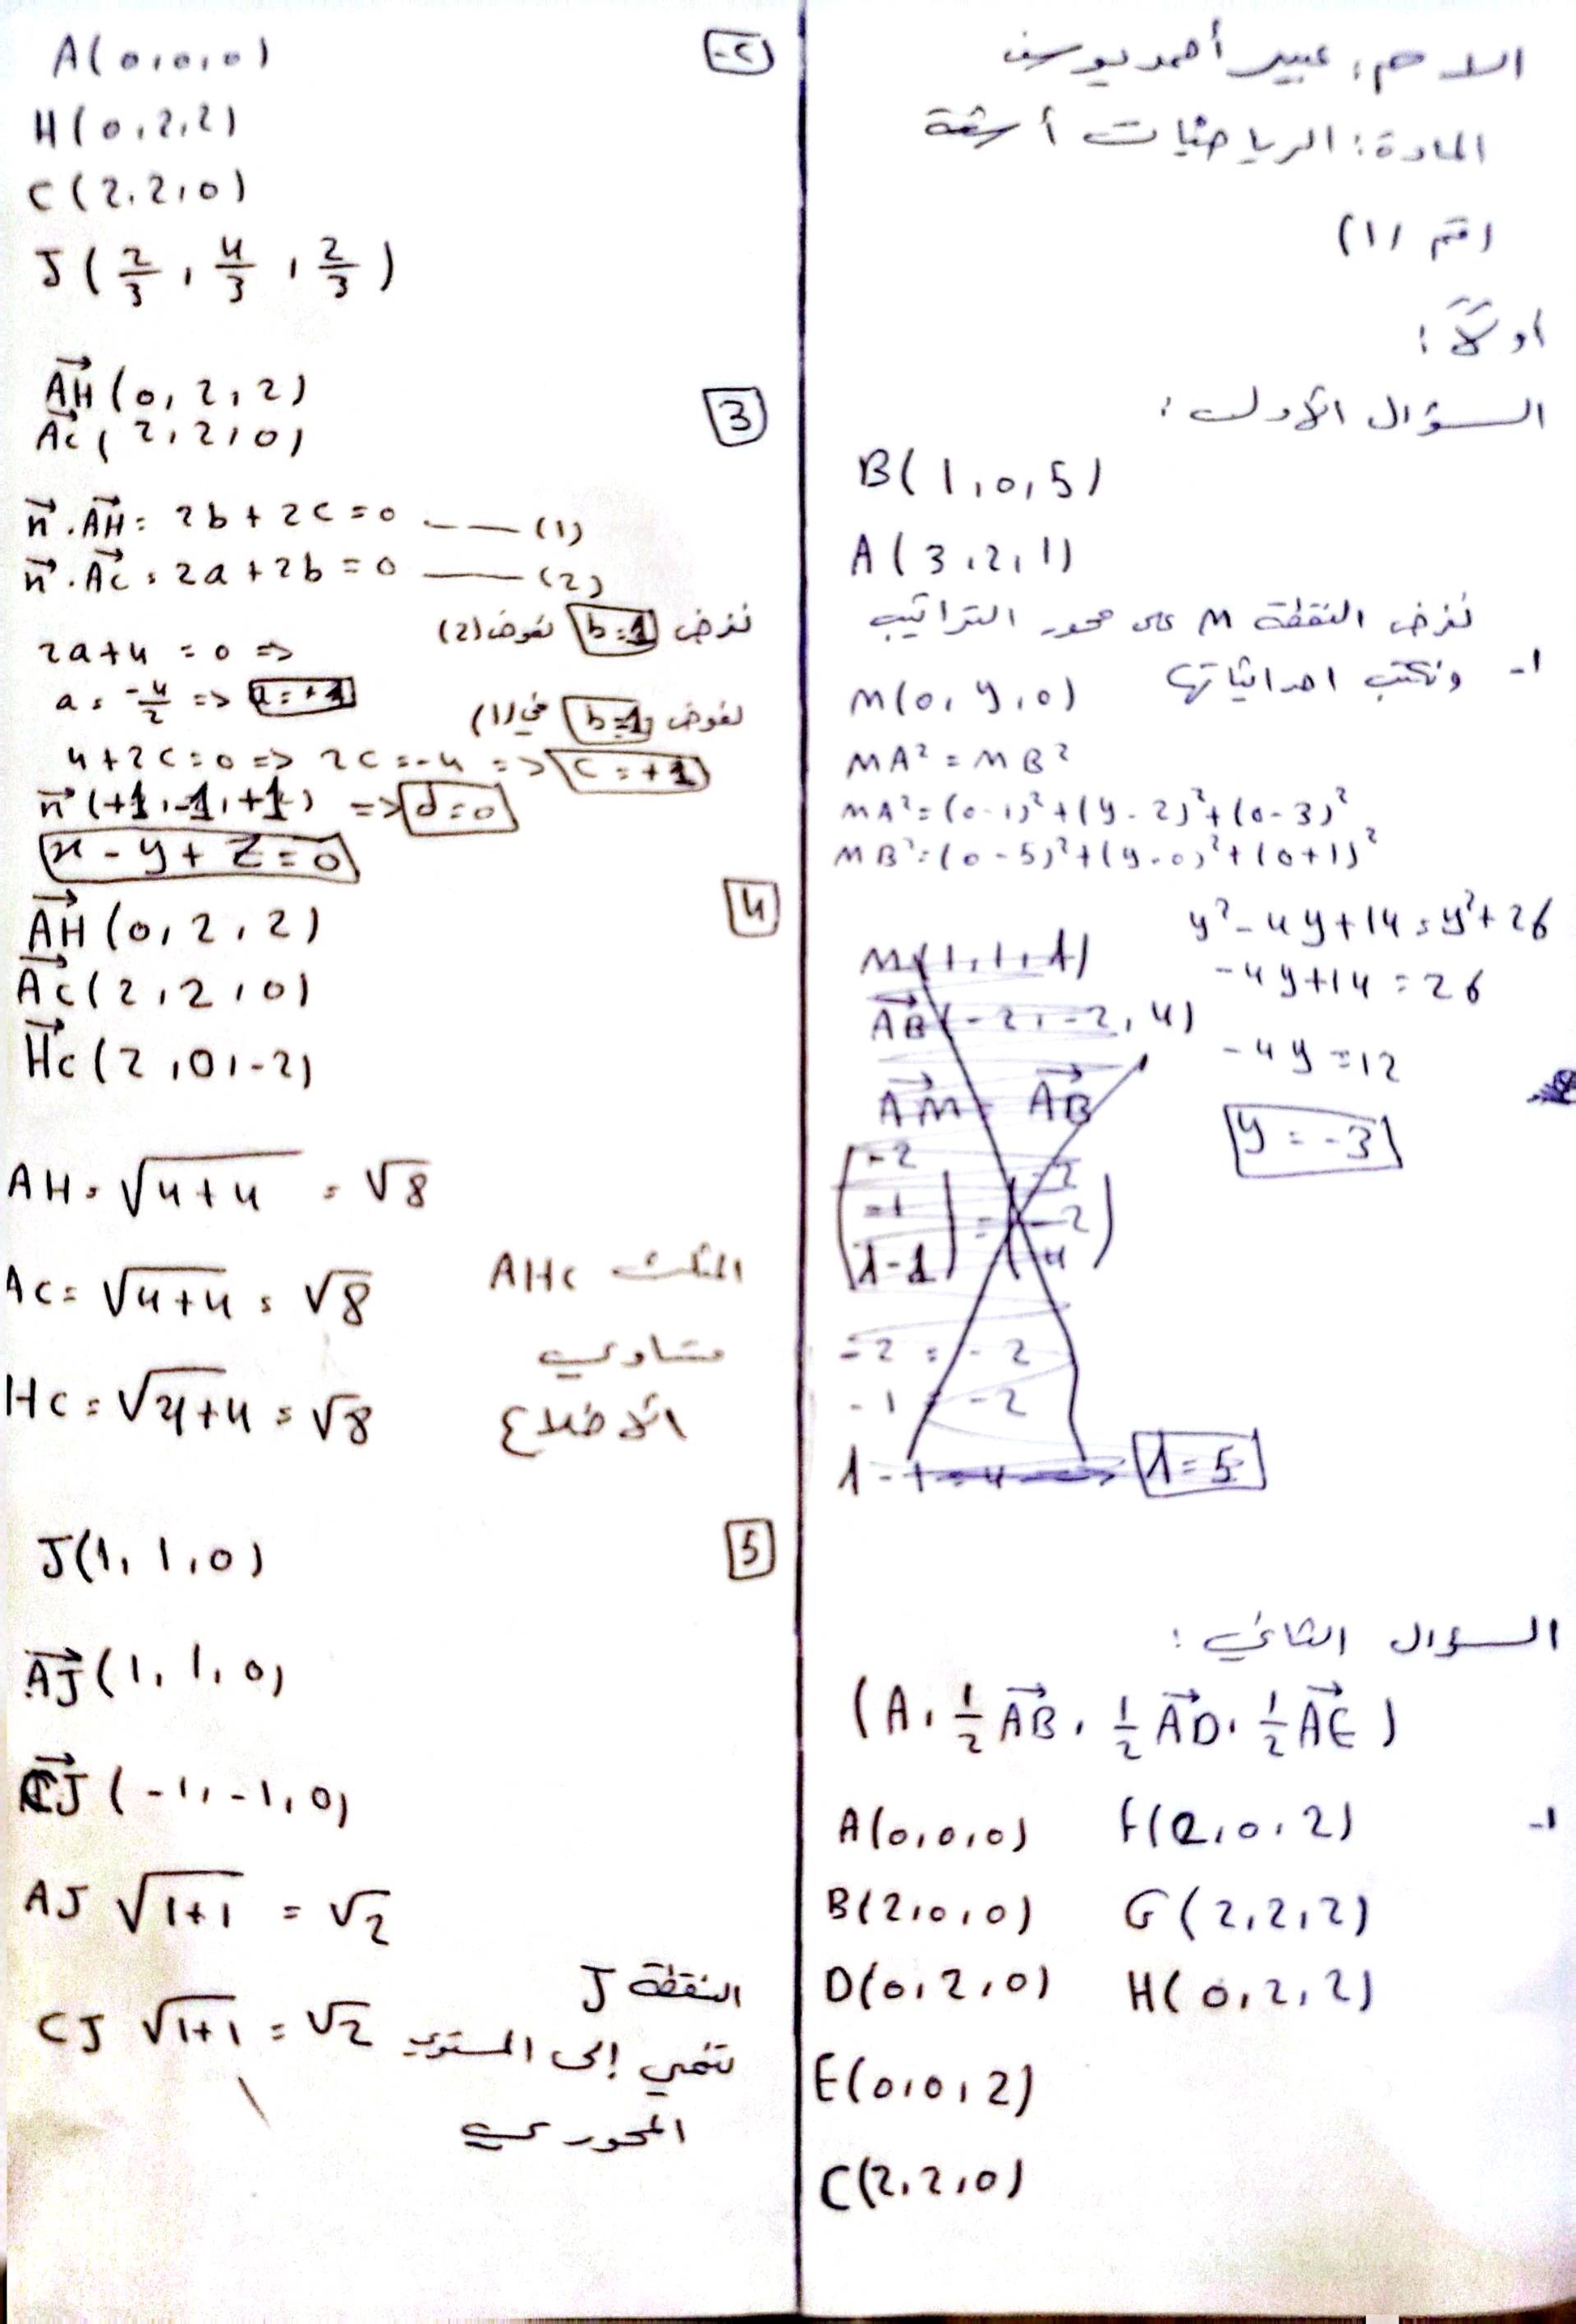 الاسم: عبير أحمد يوسف
المادة: الرياضيات أشعة
رقم (1)
أولاً:
السؤال الأول:
B(1,0,5)
A(3,2,1)
نفرض النقطة M على محور التراتيب
1- ونكتب احداثياتها
M(0,y,0)
MA² = MB²
MA² = (0-1)² + (y-2)² + (0-3)²
MB² = (0-5)² + (y-0)² + (0+1)²
y² - 4y + 14 = y² + 26
-4y + 14 = 26
-4y = 12
y = -3
M(1,1,λ)
AB(-2,-2,4)
AM = AB
-2 = -2
-1 = -2
λ-1 = 4 => λ = 5
السؤال الثاني:
(A, 1/2 AB, 1/2 AD, 1/2 AE)
1-
A(0,0,0) F(2,0,2)
B(2,0,0) G(2,2,2)
D(0,2,0) H(0,2,2)
E(0,0,2)
C(2,2,0)
2-
A(0,0,0)
H(0,2,2)
C(2,2,0)
J(2/3, 4/3, 2/3)
3
AH(0,2,2)
AC(2,2,0)
n.AH = 2b + 2c = 0 —— (1)
n.AC = 2a + 2b = 0 —— (2)
نفرض b=1 نعوض (2)
2a + 4 = 0 =>
a = -4/2 => a = +1
نعوض b=1 في (1)
4 + 2c = 0 => 2c = -4 => c = +1
n(+1,-1,+1) => d = 0
x - y + z = 0
4
AH(0,2,2)
AC(2,2,0)
HC(2,0,-2)
AH = √4+4 = √8
AC = √4+4 = √8
HC = √4+4 = √8
المثلث AHC
متساوي
الأضلاع
5
J(1,1,0)
AJ(1,1,0)
CJ(-1,-1,0)
AJ √1+1 = √2
CJ √1+1 = √2
النقطة J
تنتمي إلى المستوي
المحوري